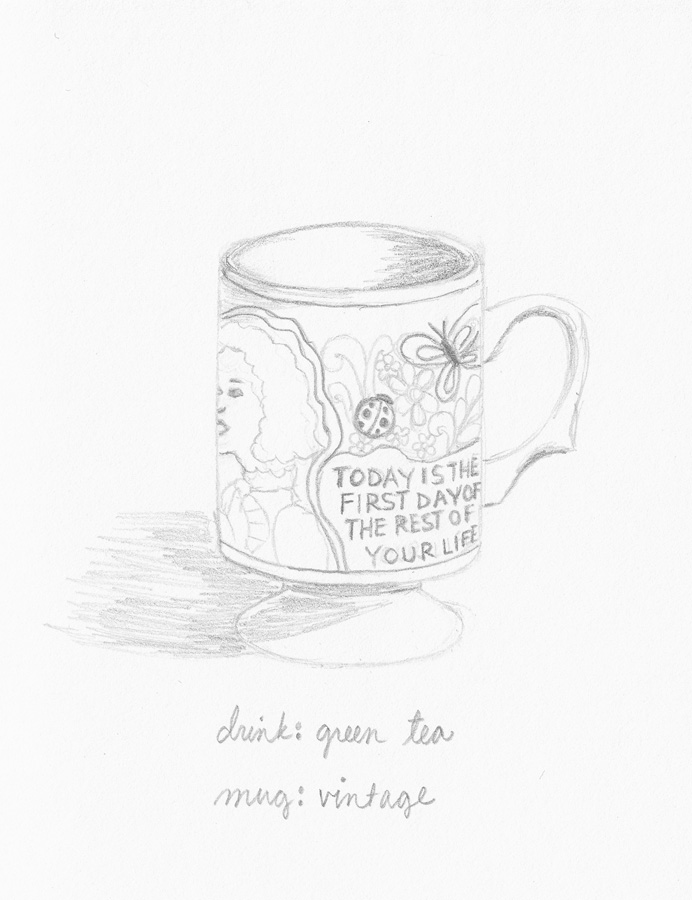 TODAY IS THE
FIRST DAY OF
THE REST OF
YOUR LIFE
drink: green tea
mug: vintage